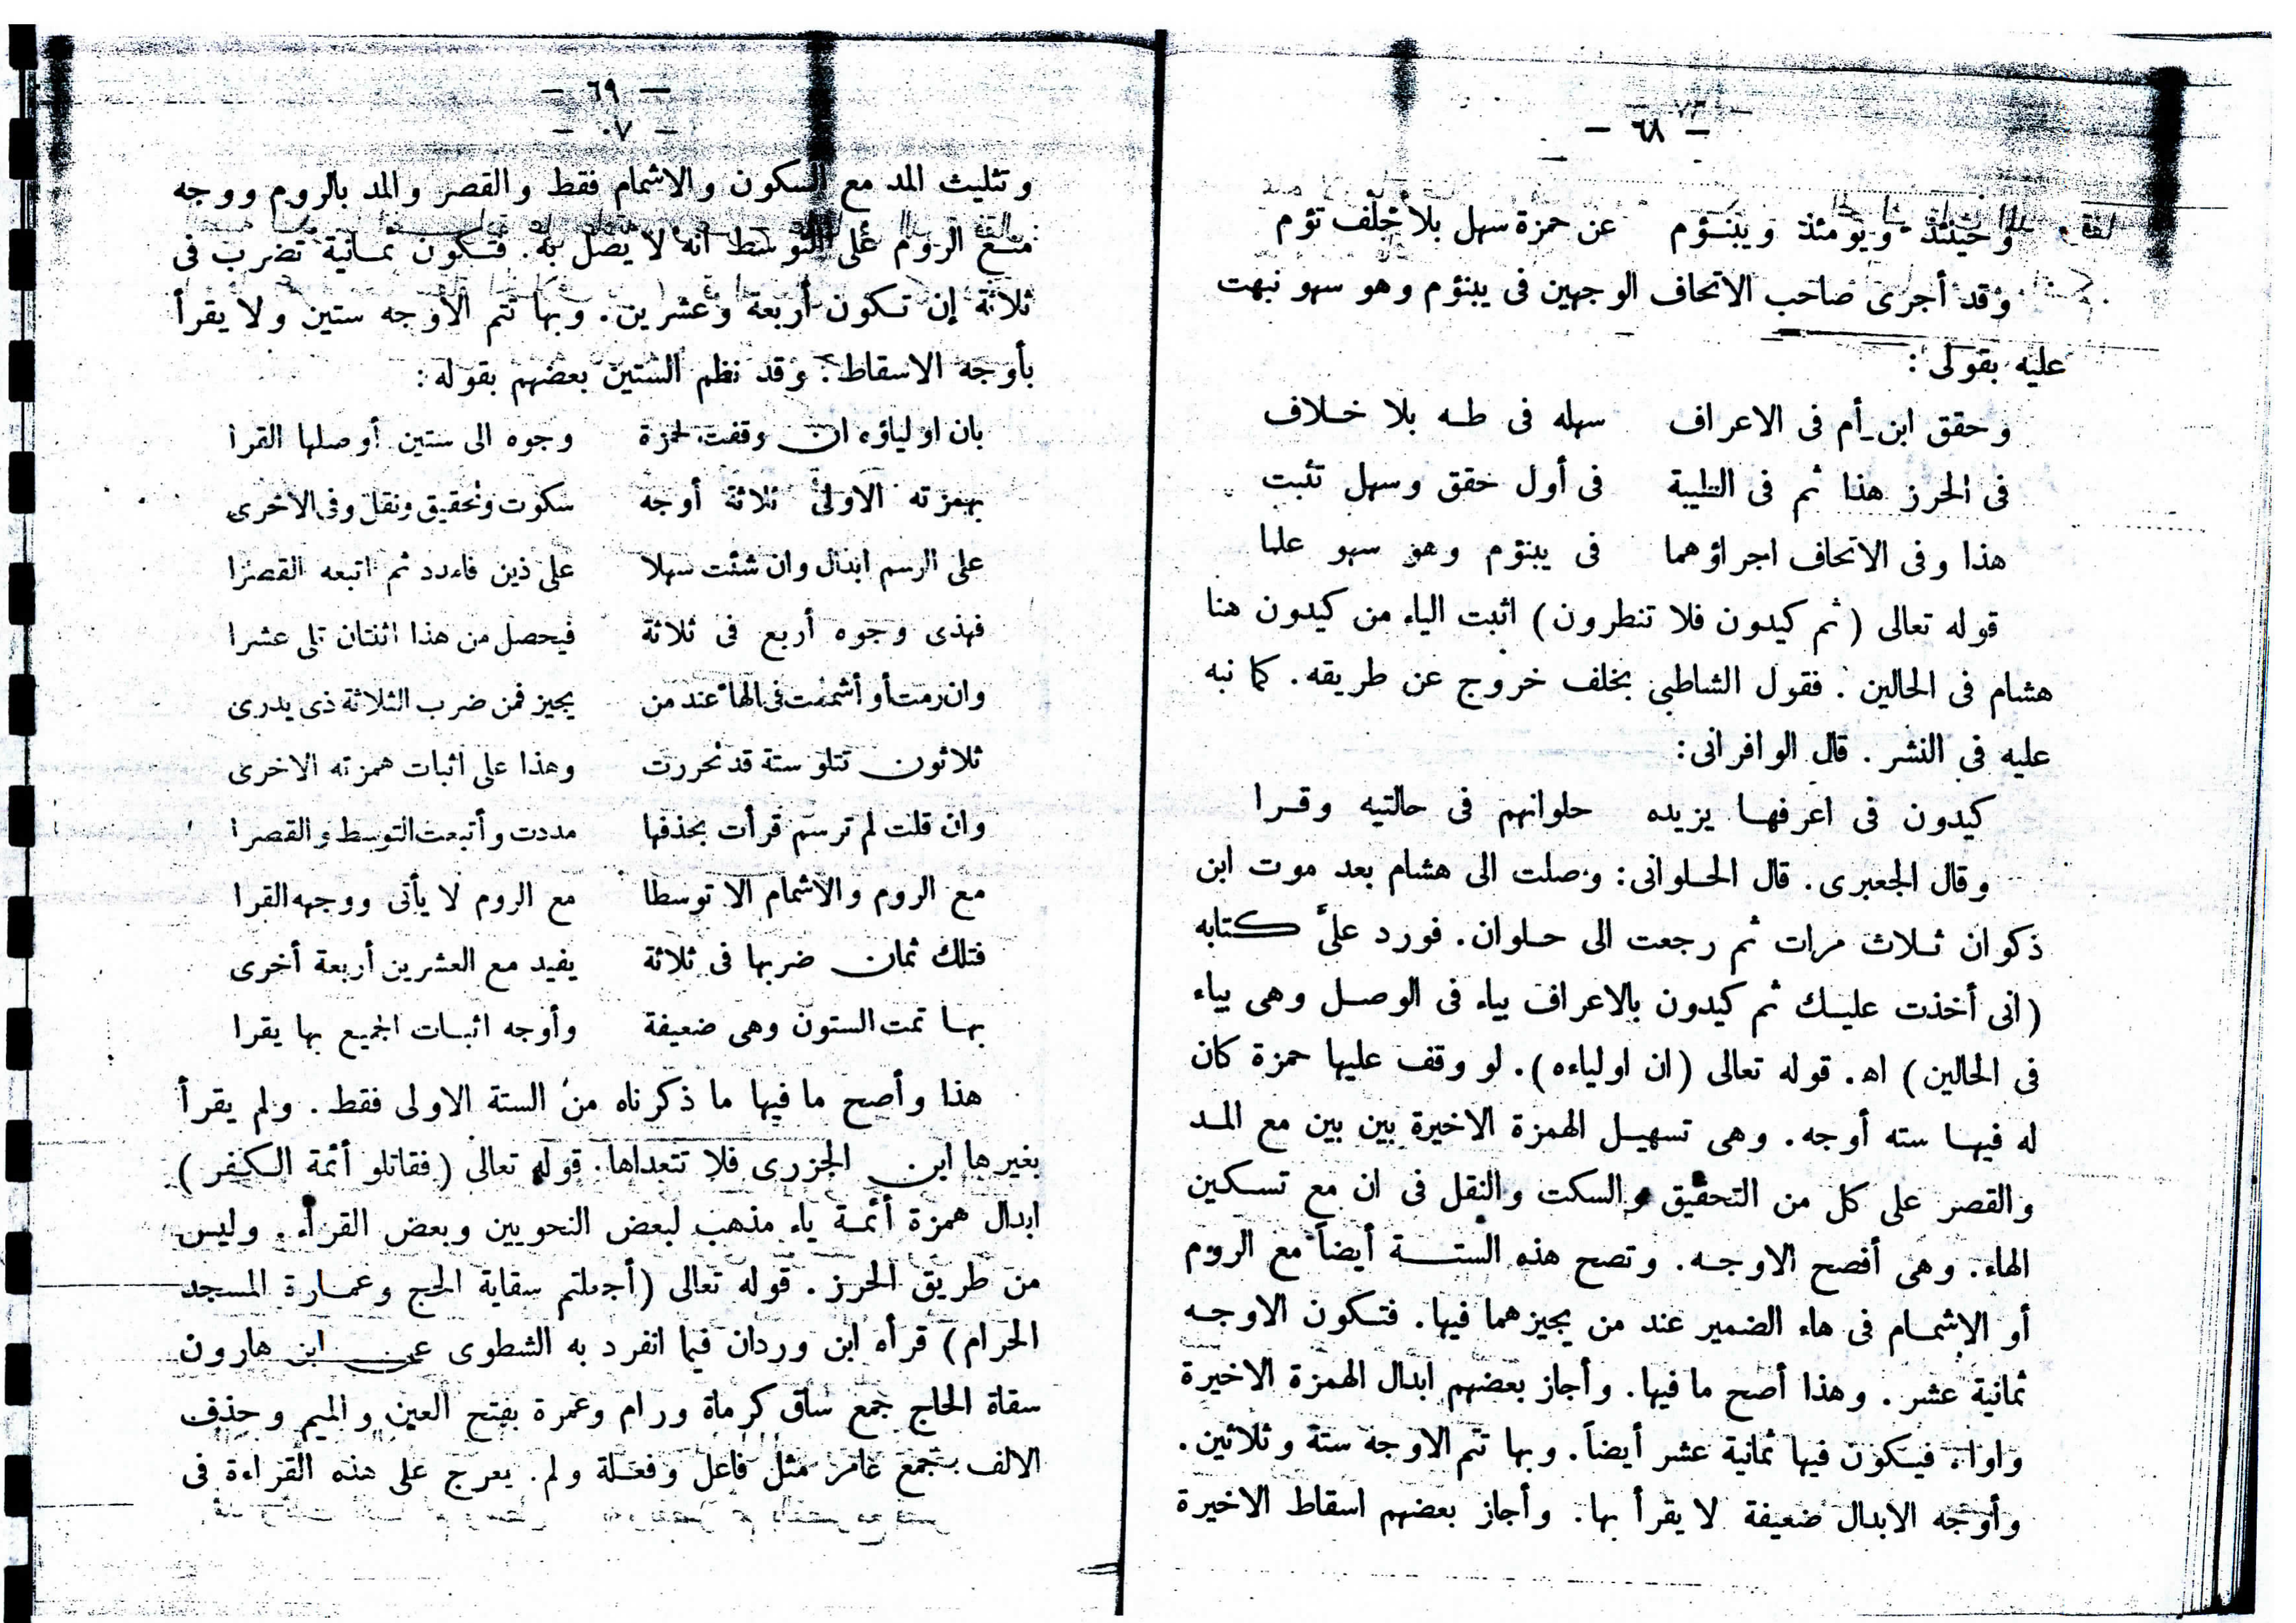 — ٦٨ —
وحينئذ ويومئذ ويبنؤم عن حمزة سهل بلا خلف تؤم
وقد أجرى صاحب الاتحاف الوجهين فى يبنؤم وهو سهو نبهت
عليه بقولى :
وحقق ابن أم فى الاعراف سهله فى طه بلا خلاف
فى الحرز هذا ثم فى الطيبة فى أول حقق وسهل تثبت
هذا وفى الاتحاف اجراؤهما فى يبنؤم وهو سهو علما
قوله تعالى ( ثم كيدون فلا تنطرون ) اثبت الياء من كيدون هنا
هشام فى الحالين . فقول الشاطبى بخلف خروج عن طريقه . كما نبه
عليه فى النشر . قال الوافرانى :
كيدون فى اعرفها يزيده حلوانهم فى حالتيه وقرا
وقال الجعبرى . قال الحلوانى : وصلت الى هشام بعد موت ابن
ذكوان ثلاث مرات ثم رجعت الى حلوان . فورد علىَّ كتابه
( انى أخذت عليك ثم كيدون بالاعراف بياء فى الوصل وهى بياء
فى الحالين ) اه . قوله تعالى ( ان اولياءه ) . لو وقف عليها حمزة كان
له فيها سته أوجه . وهى تسهيل الهمزة الاخيرة بين بين مع المد
والقصر على كل من التحقيق والسكت والنقل فى ان مع تسكين
الهاء . وهى أفصح الاوجه . وتصح هذه الستة أيضاً مع الروم
أو الاشمام فى هاء الضمير عند من يجيزهما فيها . فتكون الاوجه
ثمانية عشر . وهذا أصح ما فيها . وأجاز بعضهم ابدال الهمزة الاخيرة
واوا . فيكون فيها ثمانية عشر أيضاً . وبها تتم الاوجه ستة وثلاثين .
وأوجه الابدال ضعيفة لا يقرأ بها . وأجاز بعضهم اسقاط الاخيرة
— ٦٩ —
— ٠٧ —
وتثليث المد مع السكون والاشمام فقط والقصر والمد بالروم ووجه
منع الروم على التوسط انه لا يصل به . فتكون ثمانية تضرب فى
ثلاثة إن تكون أربعة وعشرين . وبها تتم الأوجه ستين ولا يقرأ
بأوجه الاسقاط . وقد نظم الستين بعضهم بقوله :
بان اولياؤه ان وقفت لحمزة وجوه الى ستين أوصلها القرا
بهمزته الاولى ثلاثة أوجه سكوت وتحقيق ونقل وفى الاخرى
على الرسم ابدال وان شئت سهلا على ذين فامدد ثم اتبعه القصرا
فهذى وجوه أربع فى ثلاثة فيحصل من هذا اثنتان تلى عشرا
وان رمت أو أشممت فى الهاء عند من يجيز فمن ضرب الثلاثة ذى يدرى
ثلاثون تتلو ستة قد تحررت وهذا على اثبات همزته الاخرى
وان قلت لم ترسم قرأت بحذفها مددت وأتبعت التوسط والقصرا
مع الروم والاشمام الا توسطا مع الروم لا يأتى ووجهه القرا
فتلك ثمان ضربها فى ثلاثة يفيد مع العشرين أربعة أخرى
بها تمت الستون وهى ضعيفة وأوجه اثبات الجميع بها يقرا
هذا وأصح ما فيها ما ذكرناه من الستة الاولى فقط . ولم يقرأ
بغيرها ابن الجزرى فلا تتعداها . قوله تعالى ( فقاتلو أئمة الكفر )
ابدال همزة أئمة ياء مذهب لبعض النحويين وبعض القراء . وليس
من طريق الحرز . قوله تعالى ( أجعلتم سقاية الحج وعمارة المسجد
الحرام ) قرأه ابن وردان فيما انفرد به الشطوى عن ابن هارون
سقاة الحاج جمع ساق كرماة ورام وعمرة بفتح العين والميم وحذف
الالف جمع عامر مثل فاعل وفعلة ولم . يعرج على هذه القراءة فى